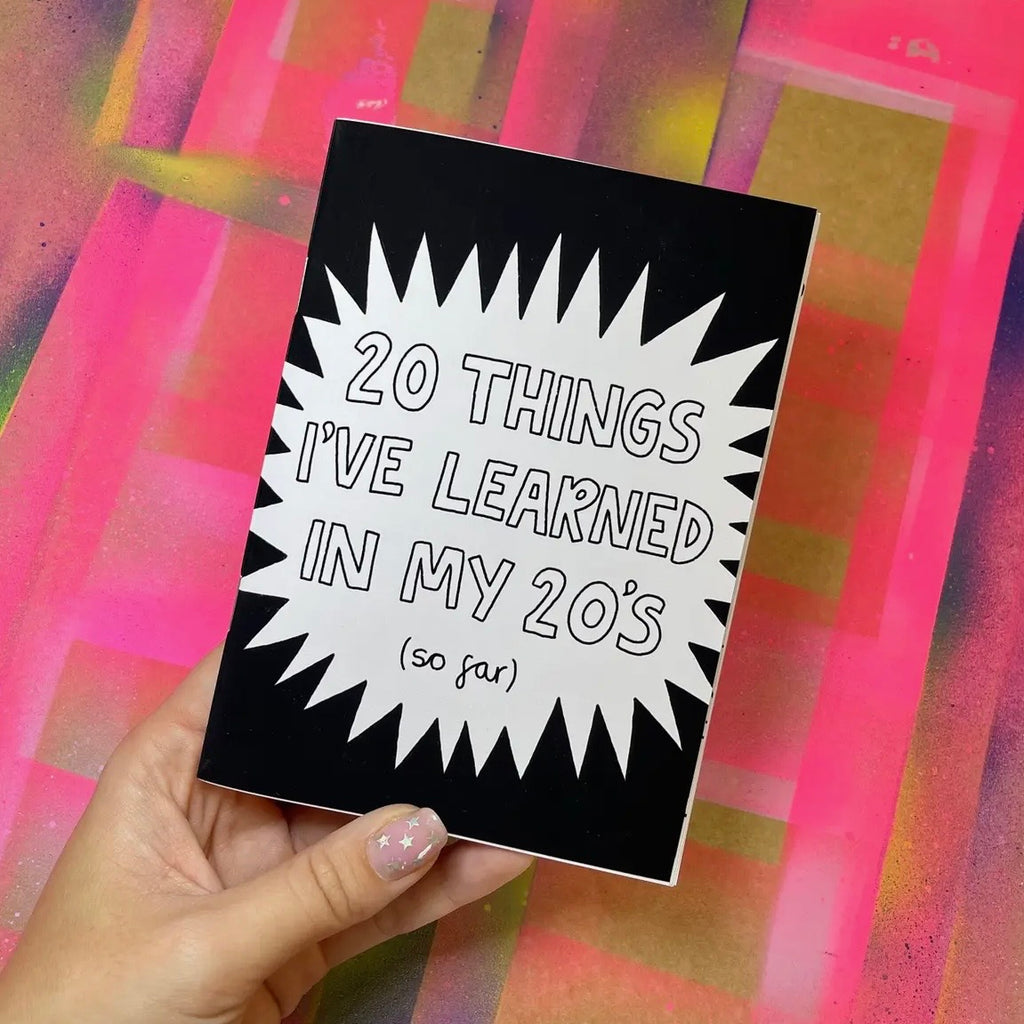 20 THINGS
I'VE LEARNED
IN MY 20'S
(so far)